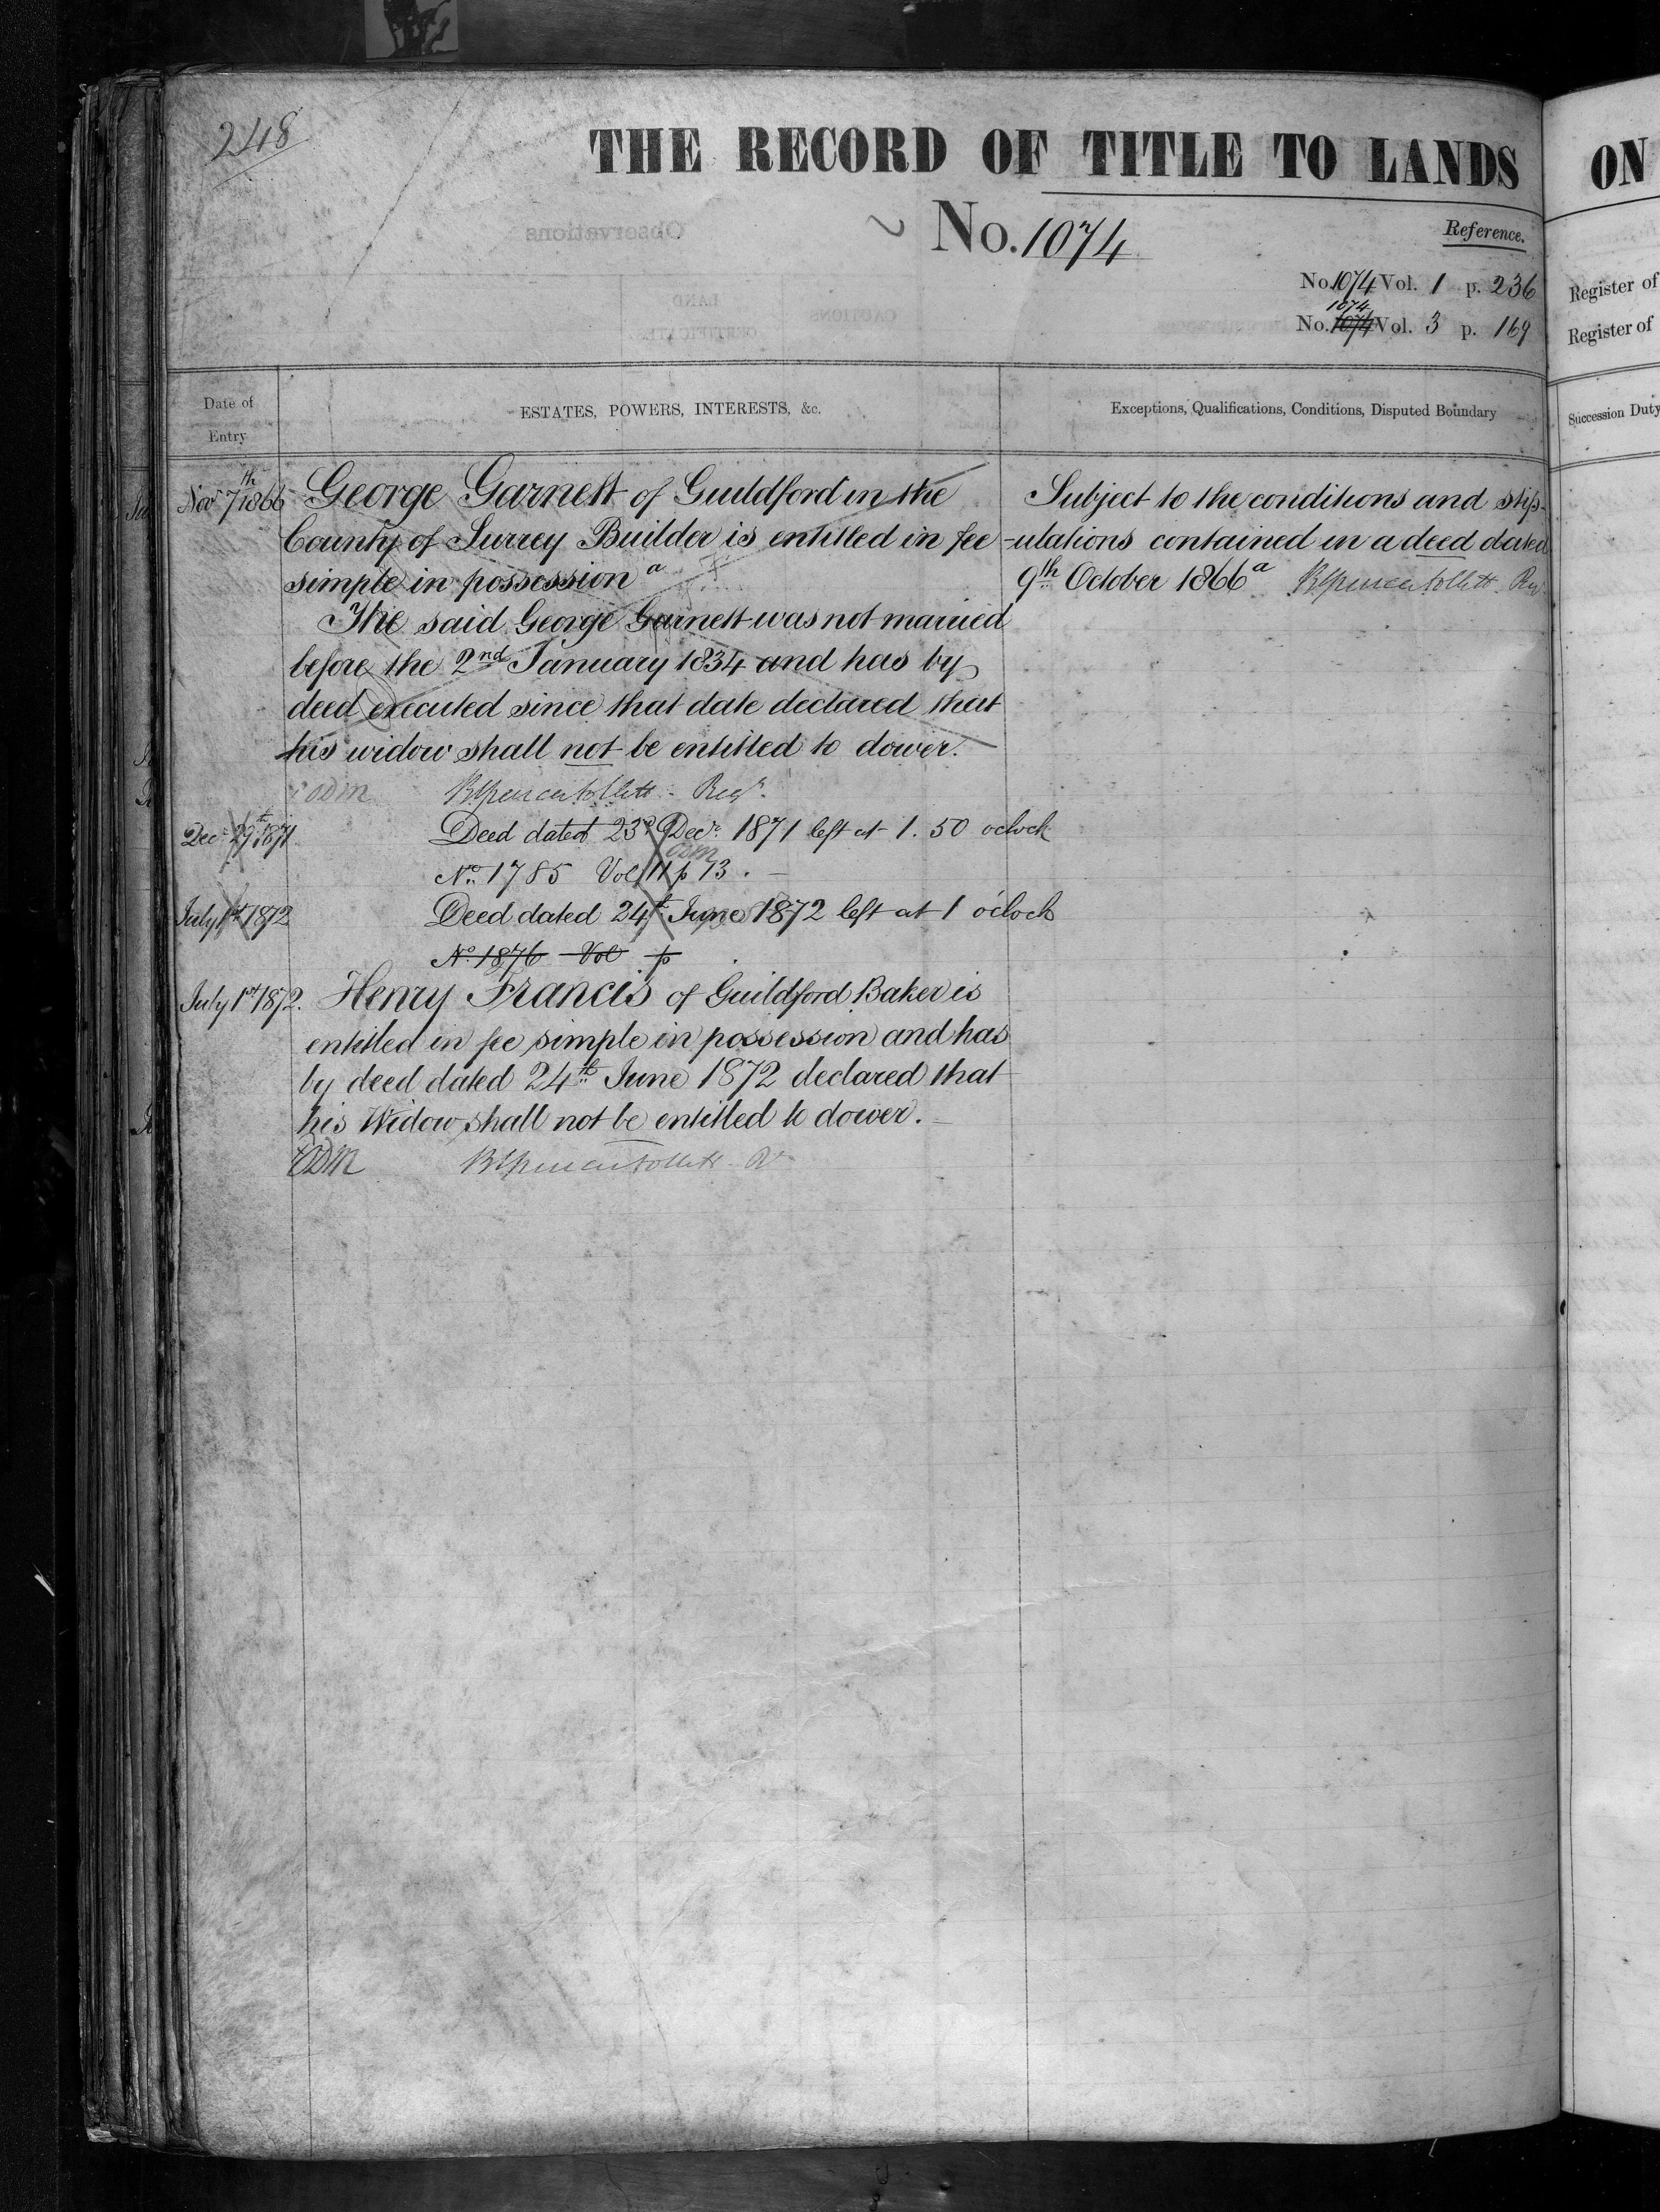 248
THE RECORD OF TITLE TO LANDS
ON
No. 1074
Reference.
No. 1074 Vol. 1 p. 236
Register of
1074
No. 1074 Vol. 3 p. 169
Register of
Date of Entry
ESTATES, POWERS, INTERESTS, &c.
Exceptions, Qualifications, Conditions, Disputed Boundary
Succession Duty
Nov 7th 1866
George Garnett of Guildford in the
County of Surrey Builder is entitled in fee
simple in possession a
The said George Garnett was not married
before the 2nd January 1834 and has by
deed executed since that date declared that
his widow shall not be entitled to dower.
Regr.
Subject to the conditions and stip-
-ulations contained in a deed dated
9th October 1866 a
Decr 29th 1871
Deed dated 23rd Decr. 1871 left at 1.50 oclock
No. 1785 Vol 11 p 13.
July 1st 1872
Deed dated 24th June 1872 left at 1 o'clock
No. 1876 Vol p
July 1st 1872.
Henry Francis of Guildford Baker is
entitled in fee simple in possession and has
by deed dated 24th June 1872 declared that
his Widow shall not be entitled to dower.